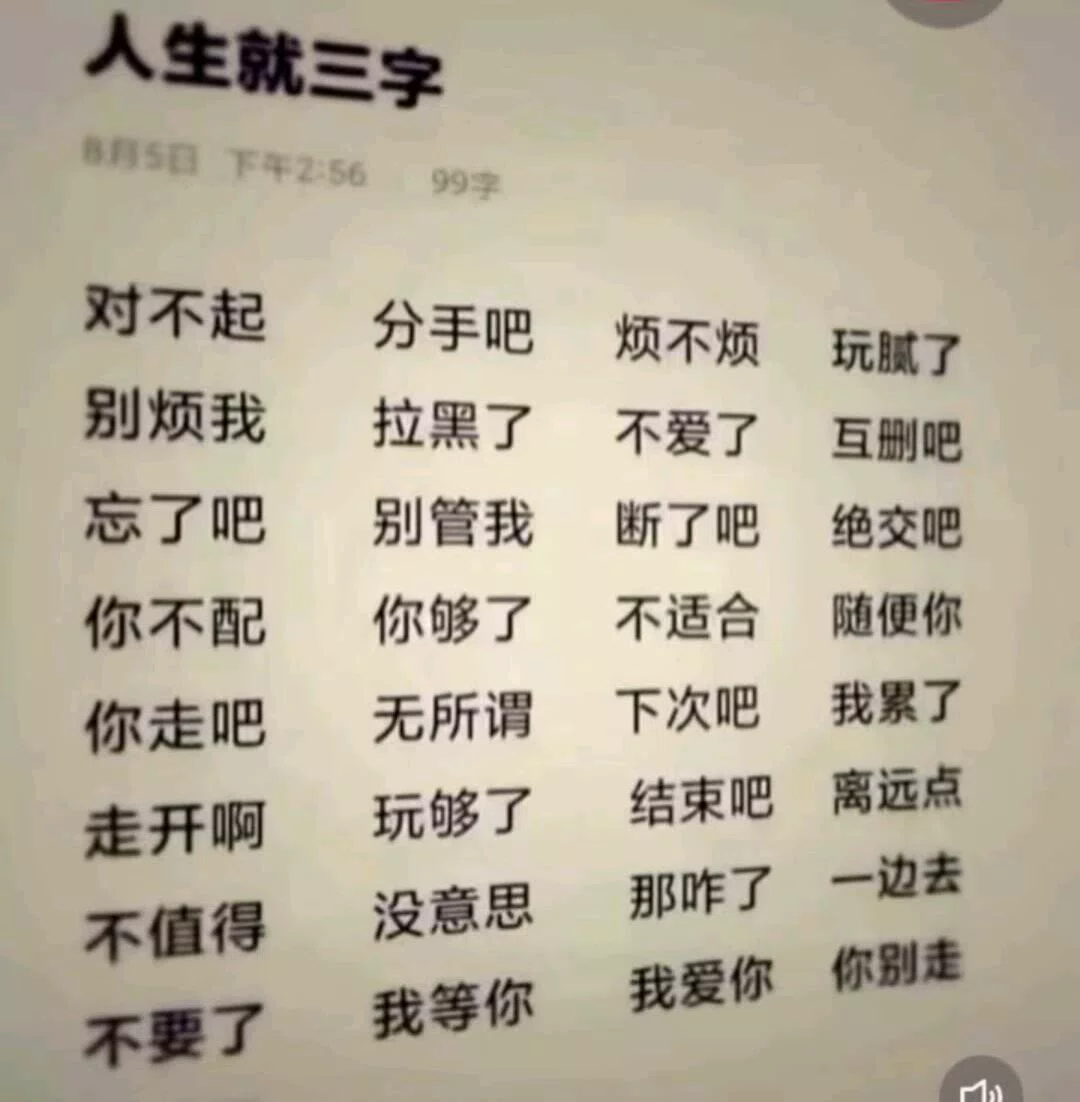 人生就三字
8月5日 下午2:56 99字
对不起 分手吧 烦不烦 玩腻了
别烦我 拉黑了 不爱了 互删吧
忘了吧 别管我 断了吧 绝交吧
你不配 你够了 不适合 随便你
你走吧 无所谓 下次吧 我累了
走开啊 玩够了 结束吧 离远点
不值得 没意思 那咋了 一边去
不要了 我等你 我爱你 你别走